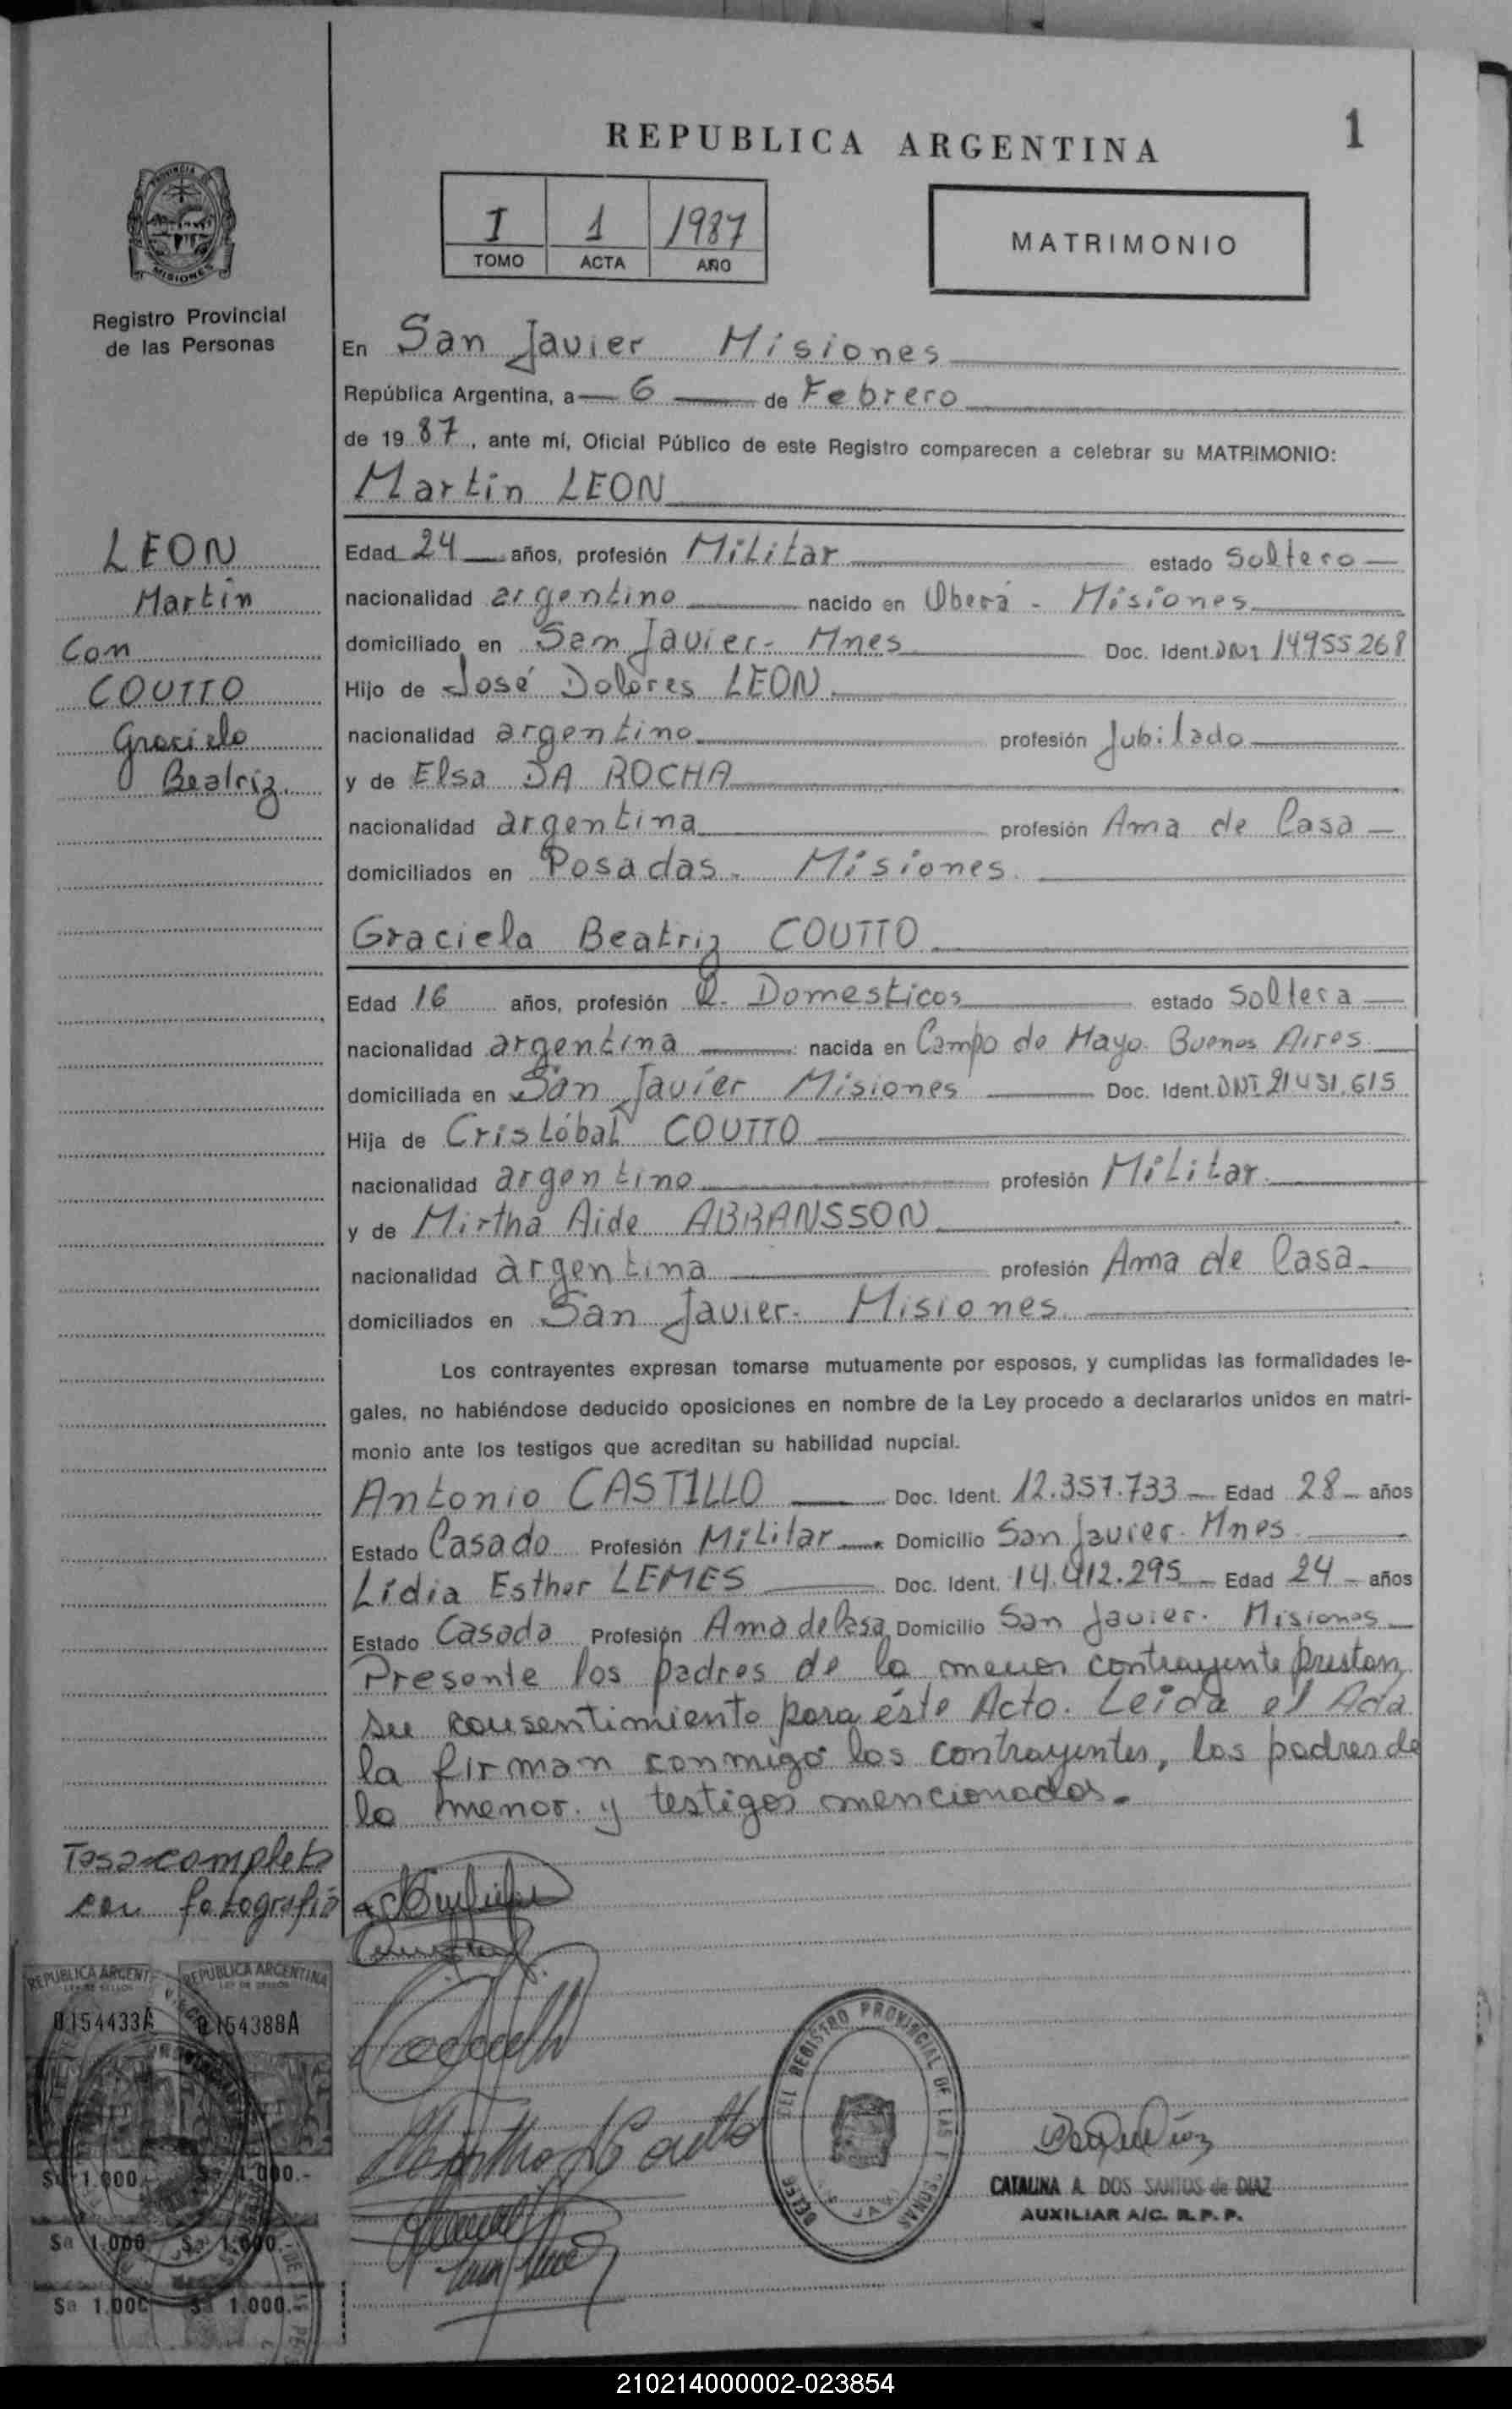 REPUBLICA ARGENTINA
1
I 1 1987
TOMO ACTA AÑO
MATRIMONIO
PROVINCIA DE
MISIONES
Registro Provincial
de las Personas
En San Javier Misiones
República Argentina, a 6 de Febrero
de 1987, ante mí, Oficial Público de este Registro comparecen a celebrar su MATRIMONIO:
Martin LEON
LEON
Martin
Con
COUTTO
Graciela
Beatriz.
Edad 24 años, profesión Militar estado Soltero
nacionalidad argentino nacido en Oberá - Misiones
domiciliado en San Javier - Mnes Doc. Ident. DNI 14955268
Hijo de José Dolores LEON
nacionalidad argentino profesión Jubilado
y de Elsa DA ROCHA
nacionalidad argentina profesión Ama de Casa
domiciliados en Posadas - Misiones.
Graciela Beatriz COUTTO
Edad 16 años, profesión Q. Domesticos estado Soltera
nacionalidad argentina nacida en Campo de Mayo. Buenos Aires.
domiciliada en San Javier Misiones Doc. Ident. DNI 21431.615
Hija de Cristóbal COUTTO
nacionalidad argentino profesión Militar.
y de Mirtha Aide ABRANSSON
nacionalidad argentina profesión Ama de Casa
domiciliados en San Javier - Misiones.
Los contrayentes expresan tomarse mutuamente por esposos, y cumplidas las formalidades le-
gales, no habiéndose deducido oposiciones en nombre de la Ley procedo a declararlos unidos en matri-
monio ante los testigos que acreditan su habilidad nupcial.
Antonio CASTILLO Doc. Ident. 12.357.733 Edad 28 años
Estado Casado Profesión Militar Domicilio San Javier. Mnes
Lidia Esther LEMES Doc. Ident. 14.412.295 Edad 24 años
Estado Casada Profesión Ama de Casa Domicilio San Javier. Misiones
Presente los padres de la menor contrayente prestan
su consentimiento para éste Acto. Leida el Acta
la firman conmigo los contrayentes, los padres de
la menor. y testigos mencionados.
Tasa completa
con fotografía
REPUBLICA ARGENT
REPUBLICA ARGENTINA
0154433A
0154388A
$a 1.000
$a 1.000.-
$a 1.000
$a 1.000.
$a 1.000
$a 1.000.-
DEL REGISTRO PROVINCIAL DE LAS
CATALINA A. DOS SANTOS de DIAZ
AUXILIAR A/C. R. P. P.
210214000002-023854